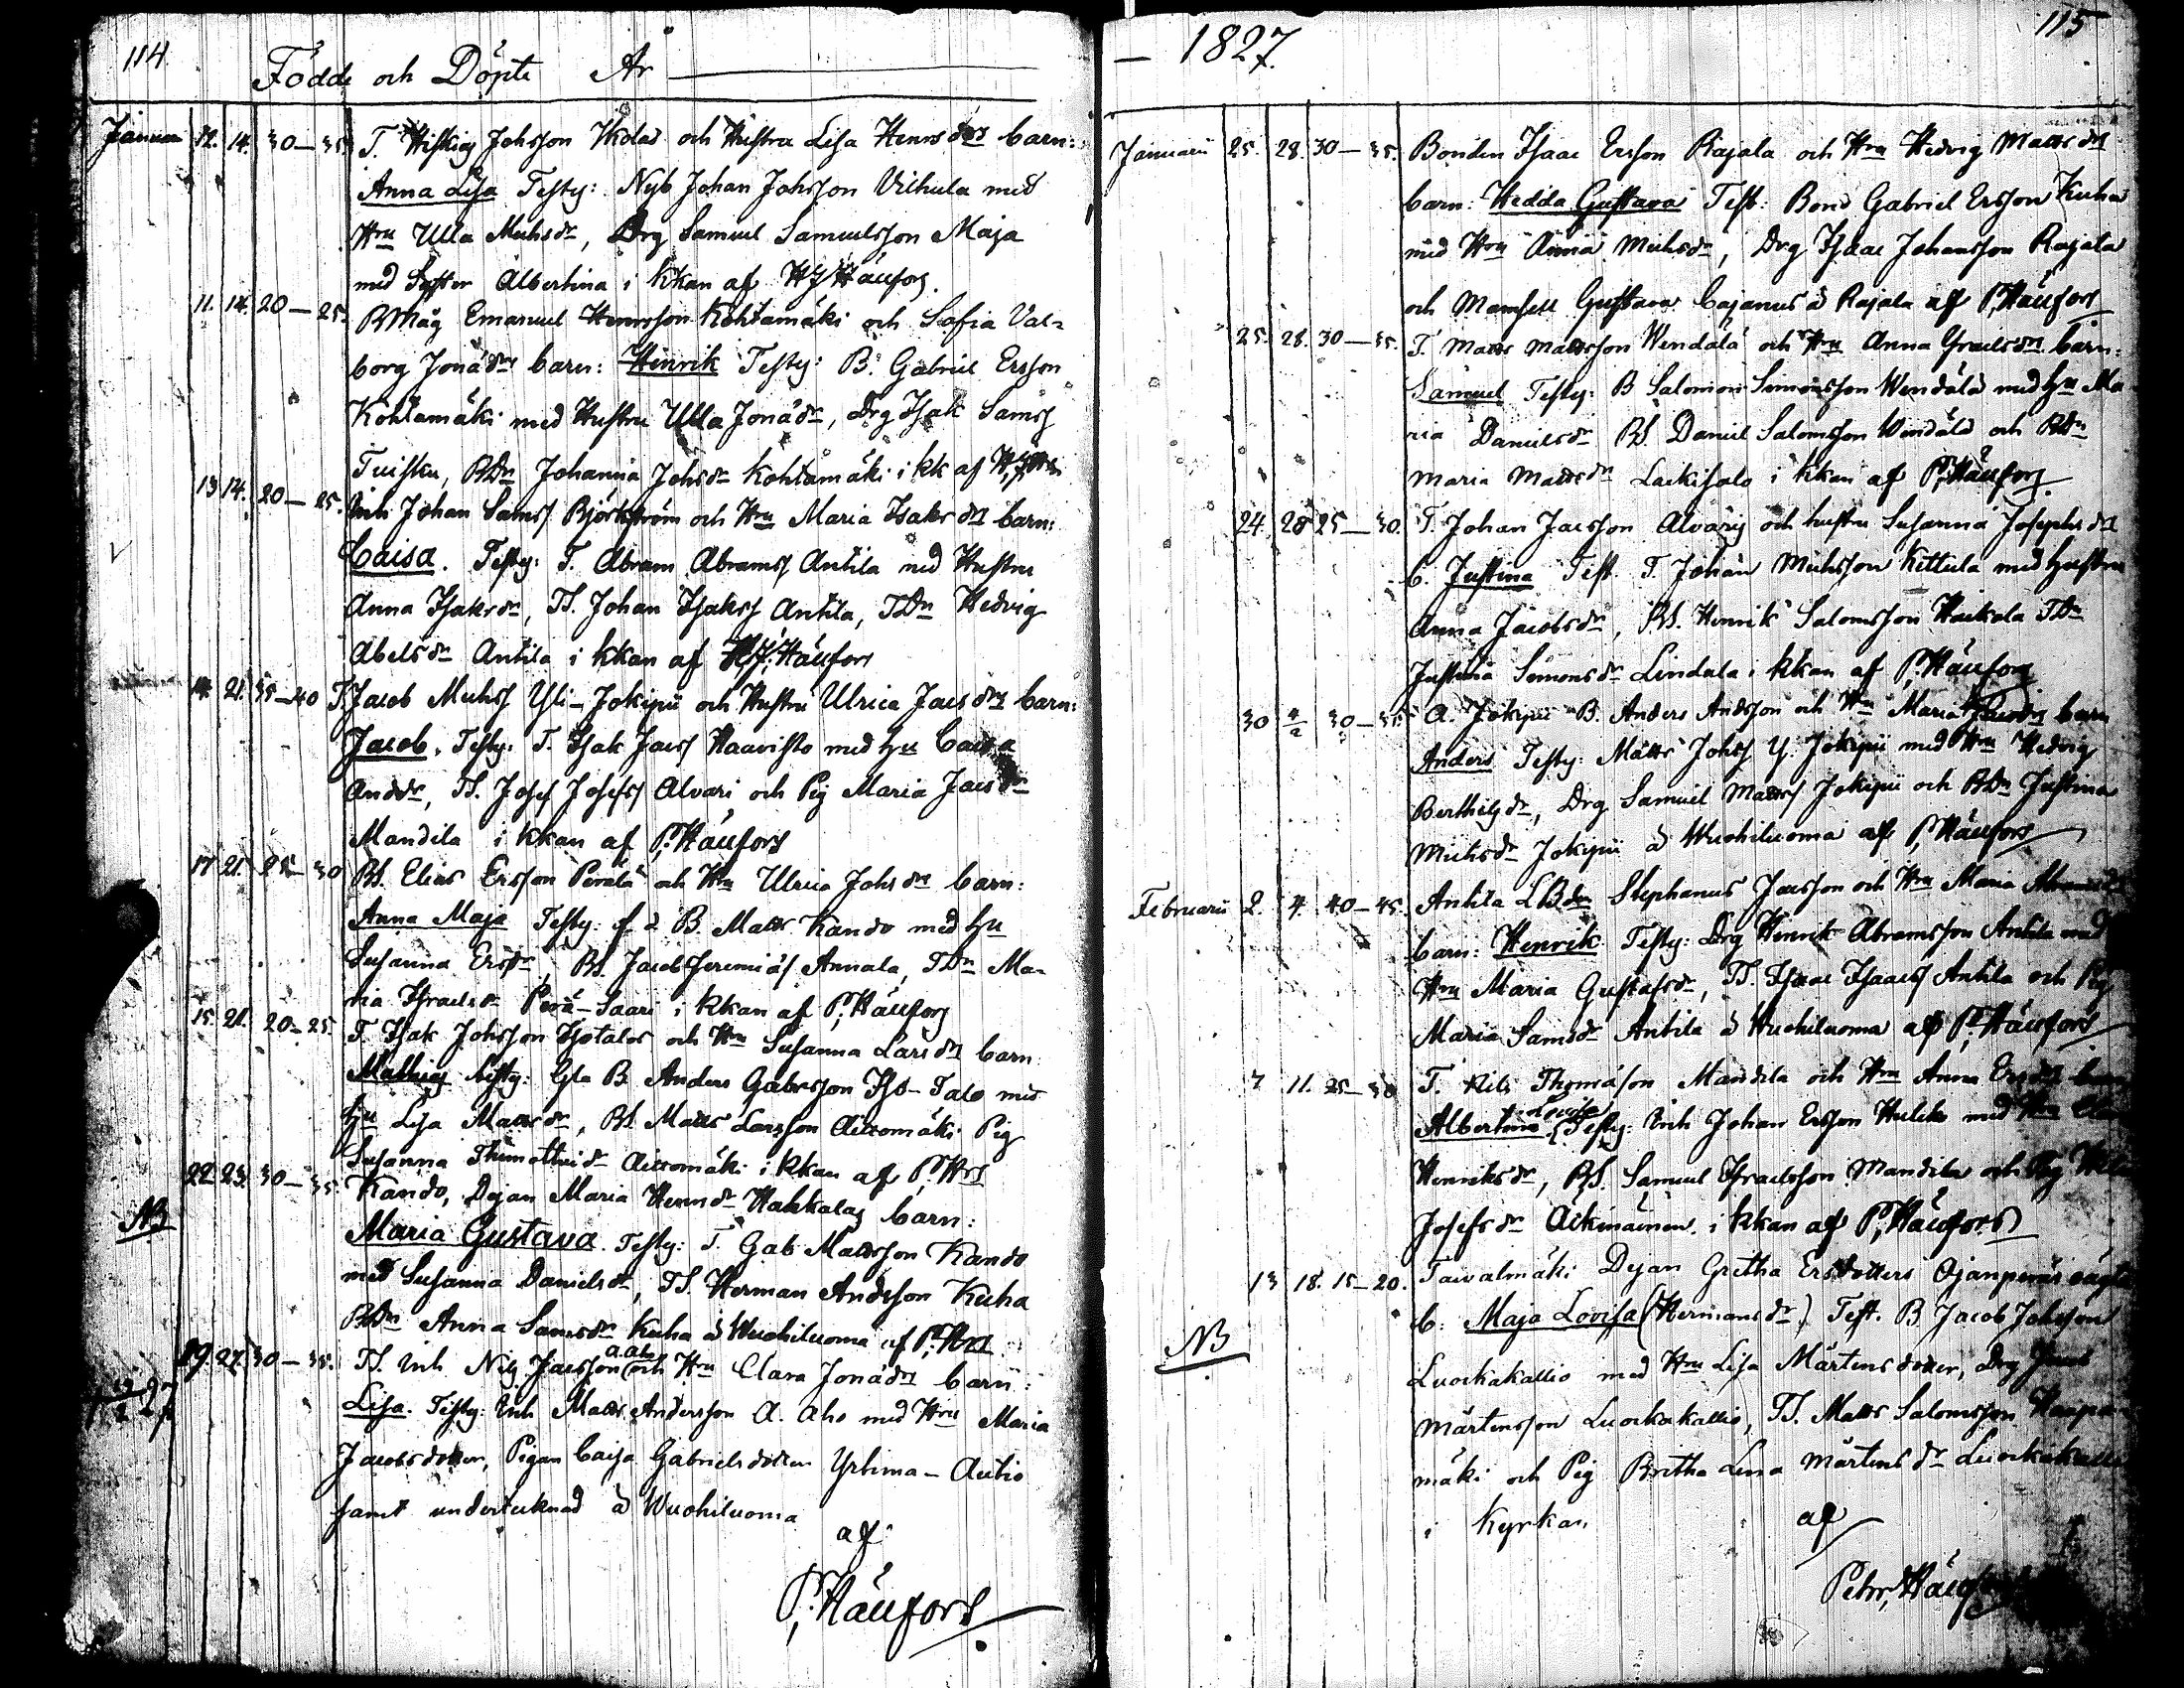 114
Födde och Döpte År
Januari 12. 14. 30—35. T. Hiskias Johsson och Hustru Lisa Henrsdrs barn:
Anna Lisa Testes: Nyb Johan Johsson Vilhula med
Hru Ulla Michsdr, Drg Samuel Samuelsson Maja
med Syster Albertina i kkan af HJ Häufors.
11. 14. 20—25. BMåg Emanuel Henrsson Kohtamäki och Sofia Val-
borg Jonædrs barn: Henrik Testes: B. Gabriel Ersson
Kohtamäki med Hustru Ulla Jonædr, Drg Isak Samss
Tuisku, BDr Johanna Johsdr Kohtamäki i kk af
13 14. 20—25. Inh Johan Samss Björkström och Hru Maria Isaksdrs barn:
Caisa. Testes: T. Abram Abramss Antila med Hustru
Anna Isaksdr, TS. Johan Isakss Antila, TDr Hedvig
Abelsdr Antila i kkan af HJ. Häufors
14. 21. 35—40 T. Jacob Michss Yli-Jokipii och Hustru Ulrica Jacsdrs barn:
Jacob. Testes: T. Isak Jacss Haavisto med hu Caisa
Andsdr, TS. Josef Josefss Alvari och Pig Maria Jacsdr
Mandila i kkan af P. Häufors
17 21. 25—30 BS. Elias Ersson Perälä och Hru Ulrica Johsdrs barn:
Anna Maja Testes: f d B. Matts Kando med hu
Susanna Ersdr, BS. Jacob Jeremiäs Annala, TDr Ma-
ria Israelsdr Perä-Saari i kkan af P. Häufors
15. 21. 20—25. T. Isak Johsson Isotalos och Hru Susanna Larsdrs barn
Mathias Testes: Gla B. Anders Gabrsson Iso-Talo med
hu Lisa Mattsdr, BS. Matts Larsson Aittomäki Pig
Susanna Thimotheidr Aittomäki i kkan af P. Hrs
22 23. 30—35. Kando, Dejan Maria Henrsdr Hahkalas barn:
NB
Maria Gustava. Testes: T. Gab Mattsson Kando
med Susanna Danielsdr, TS. Herman Andsson Kuha
BDr Anna Samsdr Kuha å Wuohiluoma af P. Hrs
19. 27. 30—35. TS. Inh Nils Jacsson (A. Aho och Hru Clara Jonædrs barn:
Lisa. Testes: Inh Matts Andersson A. Aho med Hru Maria
Jacobsdotter, Pigan Caisa Gabrielsdotter Yrlima-Autio
samt undertecknad å Wuohiluoma
af
P. Häufors
— 1827.
115
Januarii 25. 28. 30—35. Bonden Isaac Ersson Rajala och Hru Hedvig Mattsdrs
barn: Hedda Gustava Test: Bond Gabriel Ersson Kuha
med Hru Anna Michsdr, Drg Isaac Johansson Rajala
och Mamsell Gustava Cajanus å Rajala af P. Häufors
25. 28. 30—35. T. Matts Mattsson Wendälä och Hru Anna Israelsdrs barn:
Samuel Testes: B Salomon Simonsson Wendälä med hu Ma-
ria Danielsdr BS. Daniel Salomsson Wendälä och BDr
Maria Mattsdr Lackisalo i kkan af P. Häufors.
24. 28 25—30. T. Johan Jacsson Alvaris och hustru Susanna Josephsdrs
b. Justina Test. T. Johan Michsson Kettula med hustru
Anna Jacobsdr, BS. Henrik Salomsson Haukala TDr
Justina Simonsdr Lindala i kkan af P. Häufors
30 4/2 30—35 A. Jokipii B. Anders Andsson och Hru Maria Jacobsdrs barn
Anders Testes: Matts Johss Y. Jokipii med Hru Hedvig
Berthilsdr, Drg Samuel Mattss Jokipii och BDr Justina
Michsdr Jokipii å Wuohiluoma af P. Häufors
Februarii 2. 4. 40—45. Antila LBdr Stephanus Jacsson och Hru Maria
barn: Henrik Testes: Drg Henrik Abramsson Antila med
Hru Maria Gustafsdr, TS. Isaac Isaacss Antila och Pig
Maria Samsdr Antila å Wuohiluoma af P. Häufors
7 11. 25—30 T. Nils Thomäson Mandila och Hru Anna Ersdrs barn
Albertina Lovisa Testes: Inh Johan Ersson Hulcko med Hru
Henriksdr, BS. Samuel Israelsson Mandila och Pig
Josefsdr Äikinäinen i kkan af P. Häufors
13 18. 15—20. Taivalmäki Dejan Gretha Ersdotters Ojanperäs oägta
NB
b: Maja Lovisa (Hermansdr) Test. B Jacob Johsson
Luockakallio med Hru Lisa Mårtensdotter, Drg
Mårtensson Luockakallio, TS. Matts Salomsson
mäki och Pig Britha Lena Mårtensdr Luockakallio
i Kyrkan af
Petr. Häufors